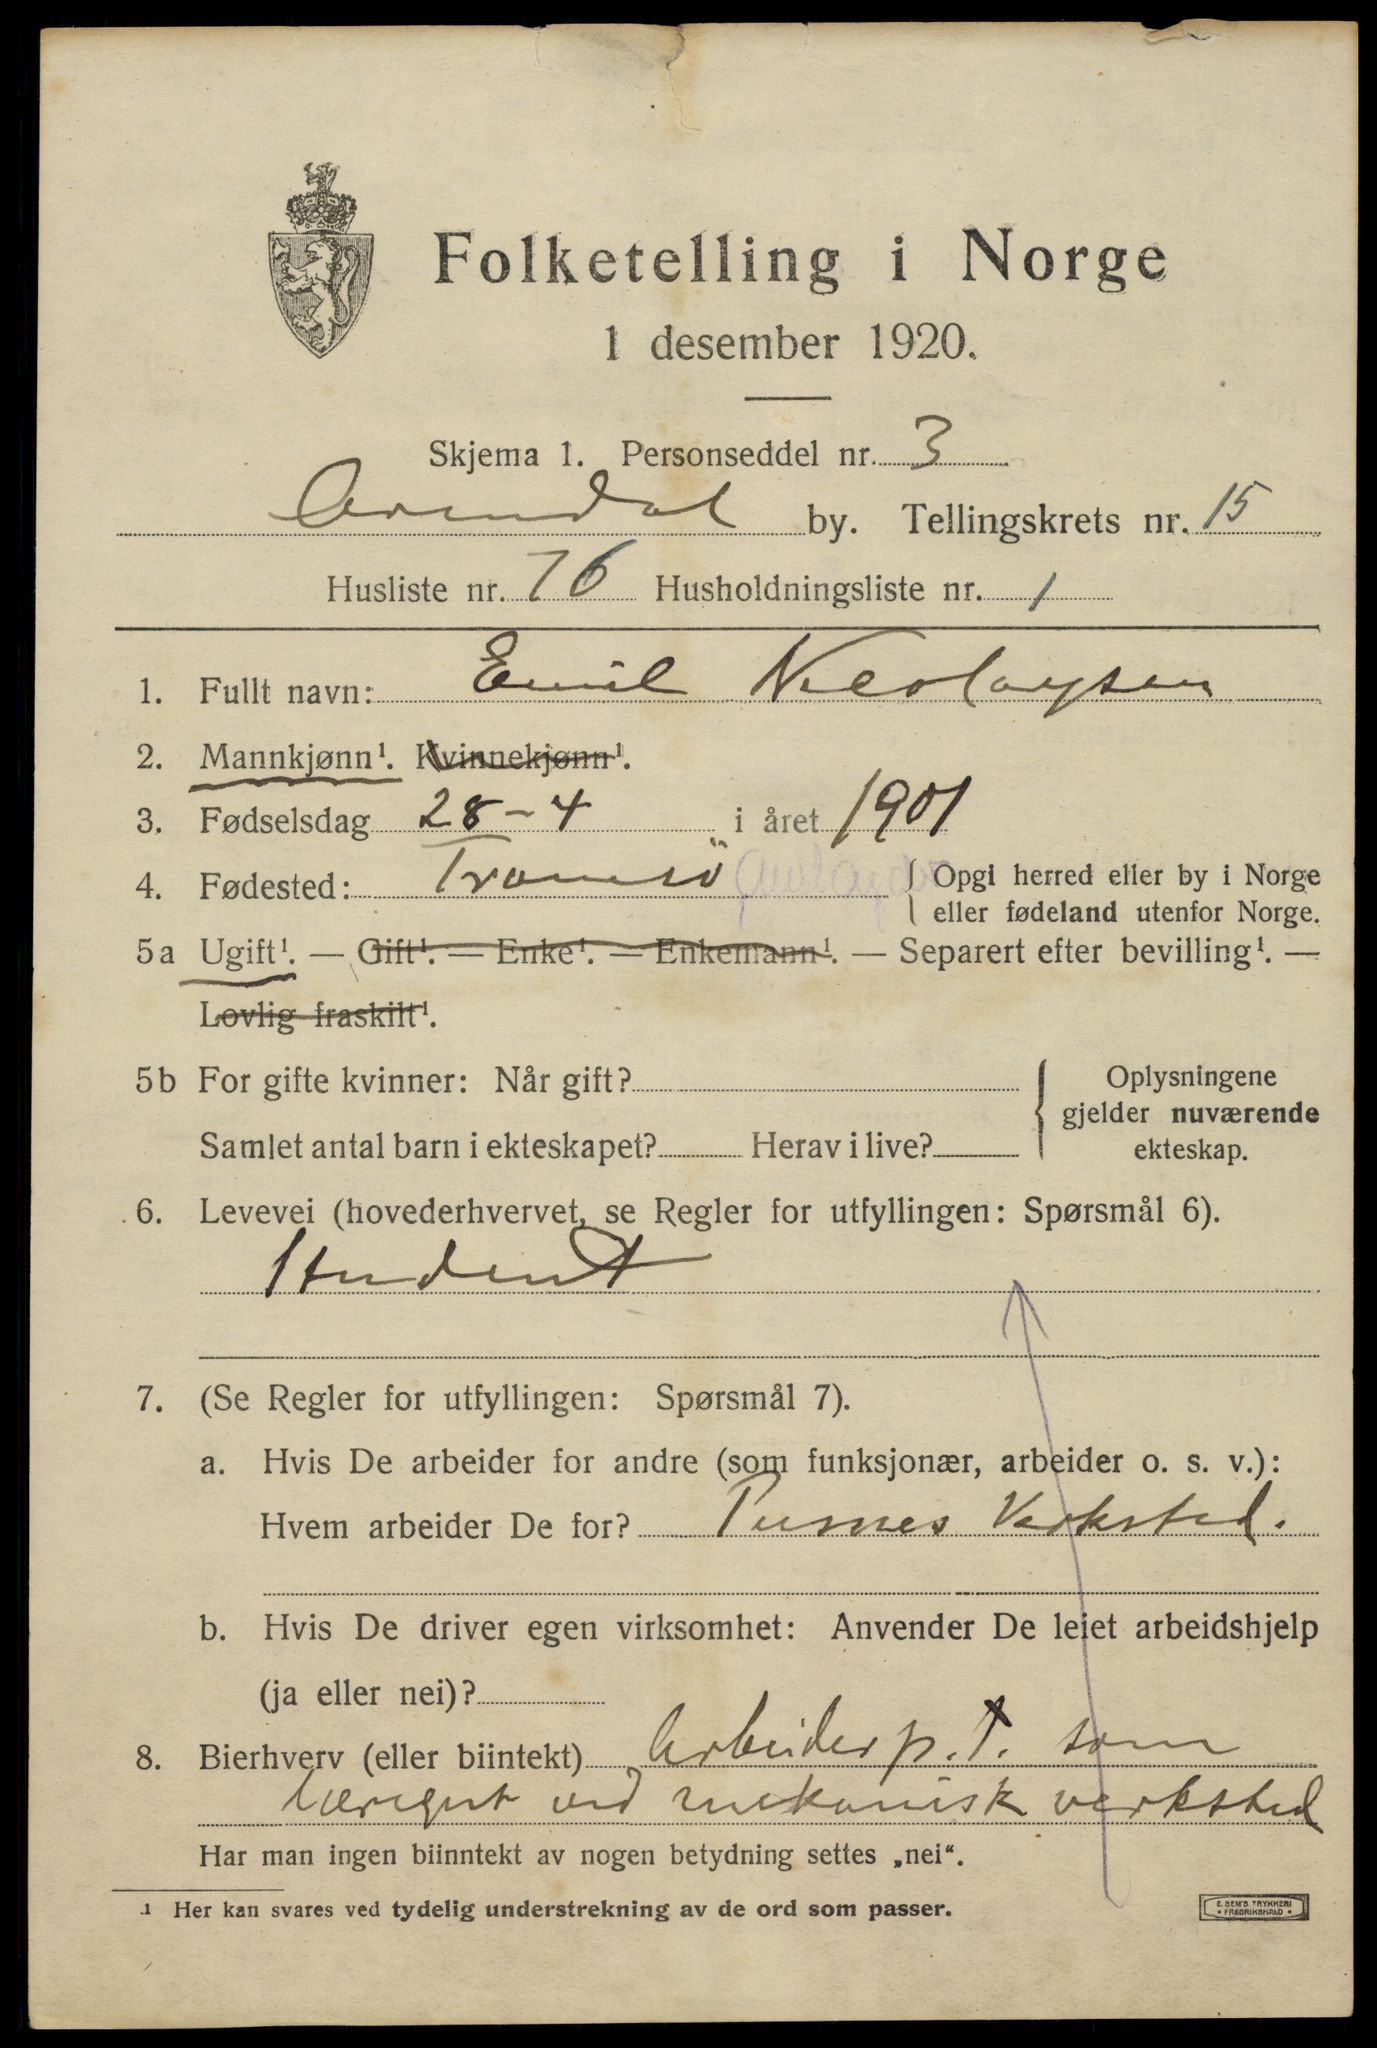 Folketelling i Norge
1 desember 1920.
Skjema 1. Personseddel nr. 3
Arendal by. Tellingskrets nr. 15
Husliste nr. 76 Husholdningsliste nr. 1
1. Fullt navn: Emil Nicolaysen
2. Mannkjønn¹. Kvinnekjønn¹.
3. Fødselsdag 28-4 i året 1901
4. Fødested: Tromsö { Opgi herred eller by i Norge
eller fødeland utenfor Norge.
5a Ugift¹. — Gift¹. — Enke¹. — Enkemann¹. — Separert efter bevilling¹. —
Lovlig fraskilt¹.
5b For gifte kvinner: Når gift? { Oplysningene
gjelder nuværende
Samlet antal barn i ekteskapet? Herav i live? ekteskap.
6. Levevei (hovederhvervet, se Regler for utfyllingen: Spørsmål 6).
Student
7. (Se Regler for utfyllingen: Spørsmål 7).
a. Hvis De arbeider for andre (som funksjonær, arbeider o. s. v.):
Hvem arbeider De for? Pusnes Verksted.
b. Hvis De driver egen virksomhet: Anvender De leiet arbeidshjelp
(ja eller nei)?
8. Bierhverv (eller biintekt) Arbeider p.t. som
læregut ved mekanisk verksted
Har man ingen biinntekt av nogen betydning settes „nei“.
¹ Her kan svares ved tydelig understrekning av de ord som passer.
E. SEM'S TRYKKERI
• FREDRIKSHALD •